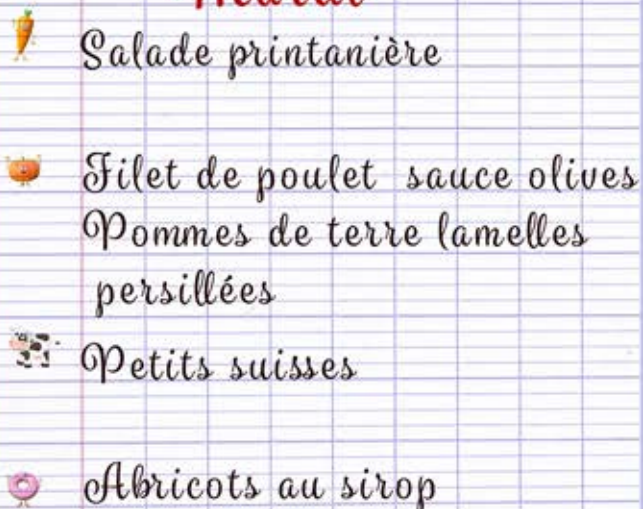 Salade printanière
Filet de poulet sauce olives
Pommes de terre lamelles
persillées
Petits suisses
Abricots au sirop